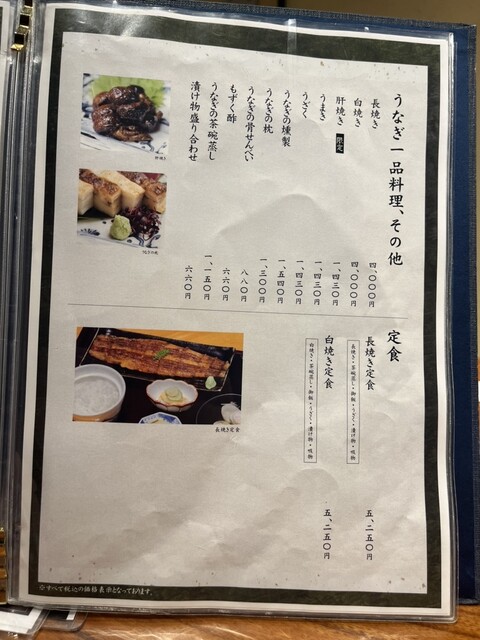 うなぎ一品料理、その他
長焼き 四、〇〇〇円
白焼き 四、〇〇〇円
肝焼き 限定 一、四三〇円
うまき 一、四三〇円
うざく 一、四三〇円
うなぎの燻製 一、五四〇円
うなぎの枕 一、三〇〇円
うなぎの骨せんべい 八八〇円
もずく酢 六六〇円
うなぎの茶碗蒸し 一、一五〇円
漬け物盛り合わせ 六六〇円
肝焼き
定食
長焼き定食 五、二五〇円
長焼き・茶碗蒸し・御飯・うざく・漬け物・吸物
白焼き定食 五、二五〇円
白焼き・茶碗蒸し・御飯・うざく・漬け物・吸物
長焼き定食
※すべて税込の価格表示となっております。